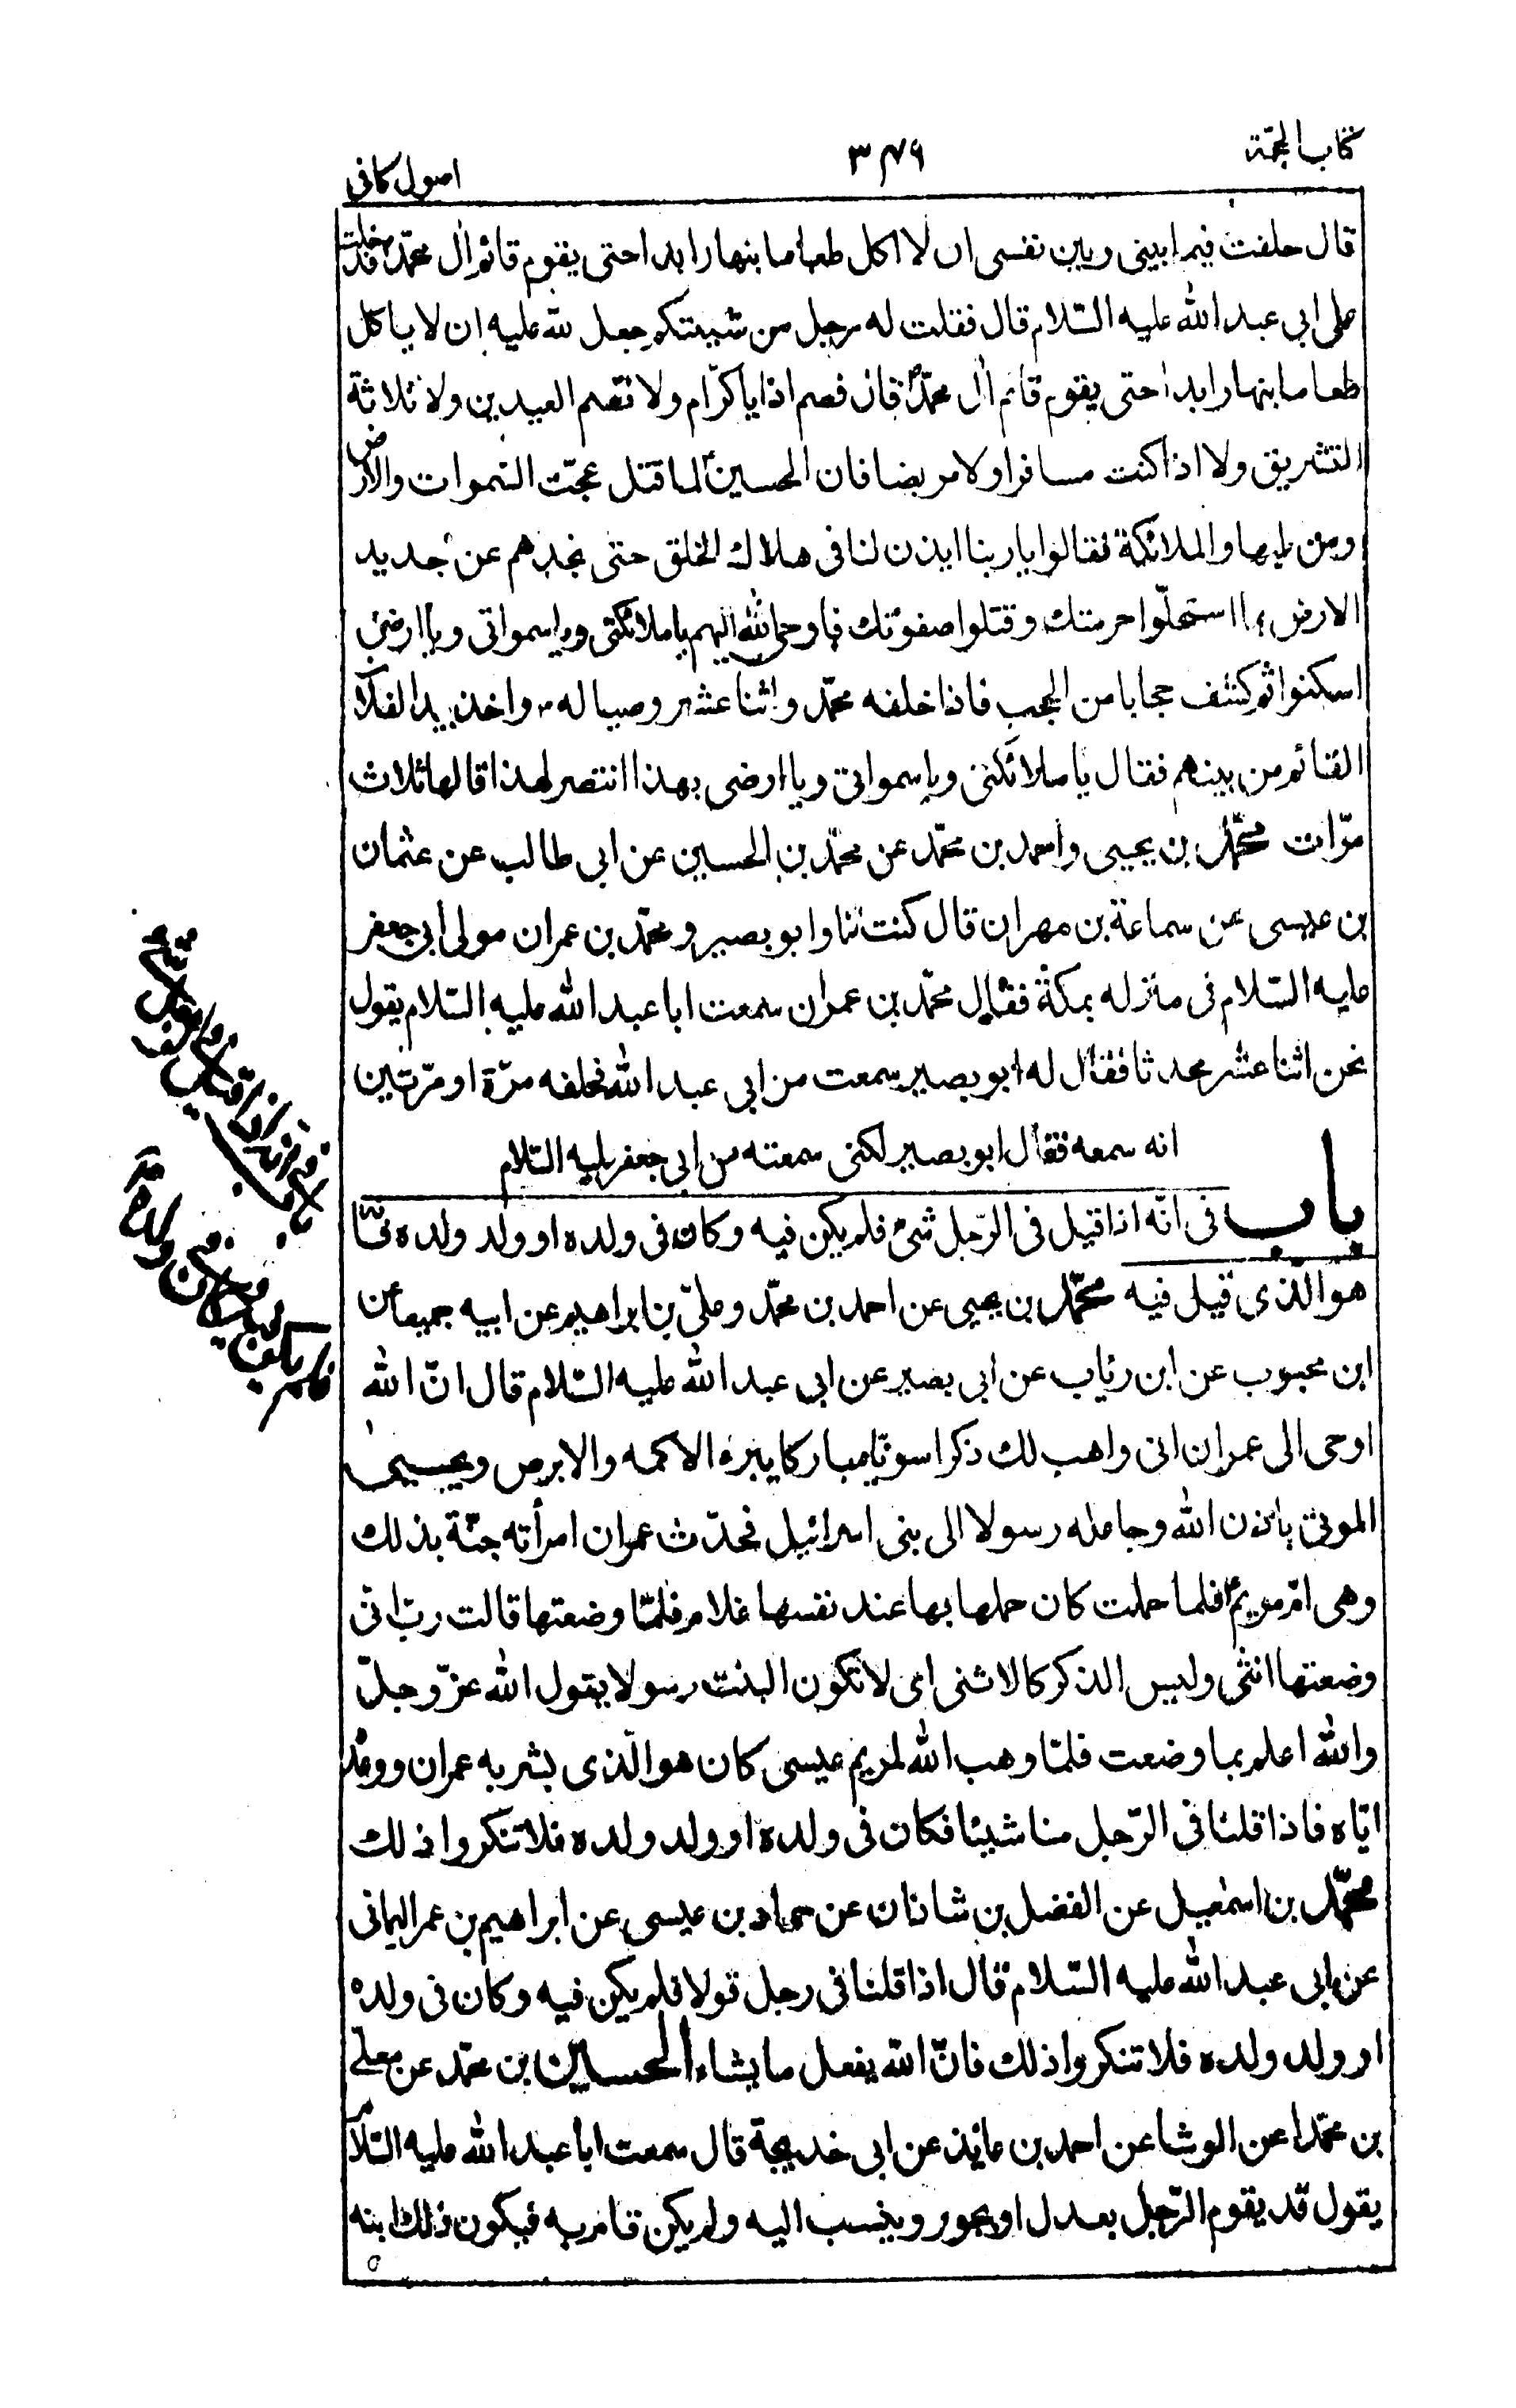 كتاب الحجّة
٣٤٦
اصول كافى
قال حلفت فيما بينى وبين نفسى ان لا اكل طعاما بنهار ابدا حتى يقوم قائم ال محمّد فدخلت
على ابى عبد الله عليه السّلام قال فقلت له رجل من شيعتكم جعل لله عليه ان لا ياكل
طعاما بنهار ابدا حتى يقوم قائم ال محمّد قال فصم اذا يا كرّام ولا تصم العيدين ولا ثلاثة
التشريق ولا اذا كنت مسافرا ولا مريضا فان الحسين لما قتل عجّت السّموات والارض
ومن عليها والملائكة فقالوا يا ربنا ايذن لنا فى هلاك الخلق حتى نجدهم عن جديد
الارض بما استحلّوا حرمتك وقتلوا صفوتك فاوحى الله اليهم يا ملائكتى ويا سمواتى ويا ارضى
اسكنوا ثم كشف حجابا من الحجب فاذا خلفه محمّد واثنا عشر وصيا له واخذ بيد الفلان
القائم من بينهم فقال يا ملائكتى ويا سمواتى ويا ارضى بهذا انتصر لهذا قالها ثلاث
مرّات محمّد بن يحيى واحمد بن محمّد عن محمّد بن الحسين عن ابى طالب عن عثمان
بن عيسى عن سماعة بن مهران قال كنت انا وابو بصير ومحمّد بن عمران مولى ابى جعفر
عليه السّلام فى منزله بمكة فقال محمّد بن عمران سمعت ابا عبد الله عليه السّلام يقول
نحن اثنا عشر محدثا فقال له ابو بصير سمعت من ابى عبد الله فحلفه مرّة او مرّتين
انه سمعه فقال ابو بصير لكنى سمعته من ابى جعفر عليه السّلام
باب فى انّه اذا قيل فى الرّجل شئ فلم يكن فيه وكان فى ولده او ولد ولده فانّه
هو الذى قيل فيه محمّد بن يحيى عن احمد بن محمّد وعلىّ بن ابراهيم عن ابيه جميعا عن
ابن محبوب عن ابن رئاب عن ابى بصير عن ابى عبد الله عليه السّلام قال انّ الله
اوحى الى عمران انى واهب لك ذكرا سويّا مباركا يبرء الاكمه والابرص ويحيى
الموتى باذن الله وجاعله رسولا الى بنى اسرائيل فحدّث عمران امرأته حنّة بذلك
وهى امّ مريم فلما حملت كان حملها بها عند نفسها غلام فلمّا وضعتها قالت ربّ انى
وضعتها انثى وليس الذكر كالانثى اى لا تكون البنت رسولا يقول الله عزّ وجلّ
والله اعلم بما وضعت فلمّا وهب الله لمريم عيسى كان هو الّذى بشر به عمران ووعده
ايّاه فاذا قلنا فى الرّجل منا شيئا فكان فى ولده او ولد ولده فلا تنكروا ذلك
محمّد بن اسمعيل عن الفضل بن شاذان عن حماد بن عيسى عن ابراهيم بن عمر اليمانى
عن ابى عبد الله عليه السّلام قال اذا قلنا فى رجل قولا فلم يكن فيه وكان فى ولده
او ولد ولده فلا تنكروا ذلك فانّ الله يفعل ما يشاء الحسين بن محمّد عن معلّى
بن محمّد عن الوشا عن احمد بن عائذ عن ابى خديجة قال سمعت ابا عبد الله عليه السّلام
يقول قد يقوم الرّجل بعدل او بجور وينسب اليه ولم يكن قام به فيكون ذلك ابنه